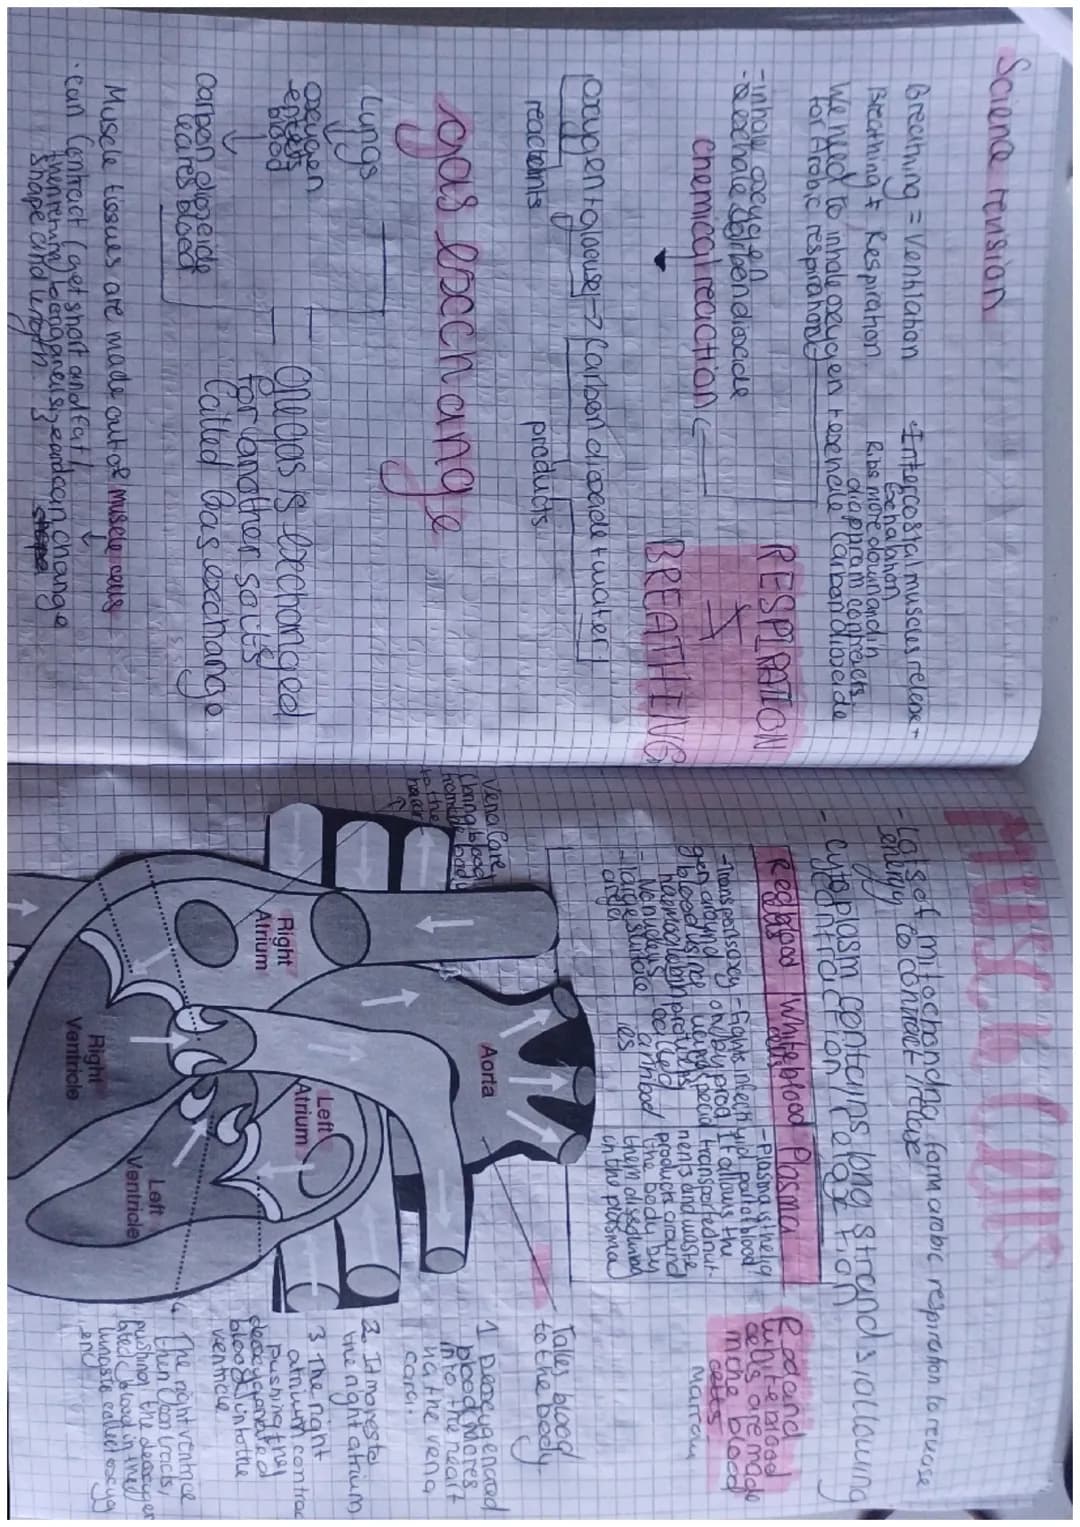 Science revision
Breathing = Ventilation
Breathing ≠ Respiration
We need to inhale oxygen + exhale carbon dioxide
for Arobic respiration
- Intercostal muscles release +
Exhalation
Ribs move down and in
diappram contracts.
- inhale oxcygen
- exhale carbon dioxcide
chemical reaction
RESPIRATION
≠
BREATHING
oxcygen + glouse → Carbon dioxide + water
reactants
products
gas Excchange
Lungs
oxcygen
enters
blood
carbon dioxeide
leares blood
One gas is Exchanged
for another so its
called Gas exchange
Muscle tissues are made out of muscle cells
· Can Contract (get short and fat)
shape and length
MUSCLE CELLS
- Lots of mitochondria, for marobic respiration to release
energy to contract/relaxe
- cytoplasm contains long strands allowing
contraction/relaxation
Red blood
cells
White blood
cells
Plasma
- Transports oxcy
gen around
blood using
haemoglobin
- No nucleus
- large surface
area
- Fights infecti
on by prod
ucing special
proteins
called
antibod
ies
- Plasma is the liq
uid part of blood
it allows the
transported nut-
rients and waste
products around
the body by
them dissolving
in the plasma
Red and
white blood
cells are made
in the blood
marrow
Vena Cava
(bring blood
from the body
to the
heart
Takes blood
to the body.
Aorta
Right
Atrium
Left
Atrium
Right
Ventricle
Left
Ventricle
1 Deoxcygenated
blood enteres
into the heart
via the vena
cava.
2. It moves to
the right atrium
3 The right
atrium contrac
pushing the
deoxcygenated
blood into the
ventricle
4. The right ventricle
then contracts,
pushing the deoxcygen
ated blood in the
lungs to collect oxcyg
en